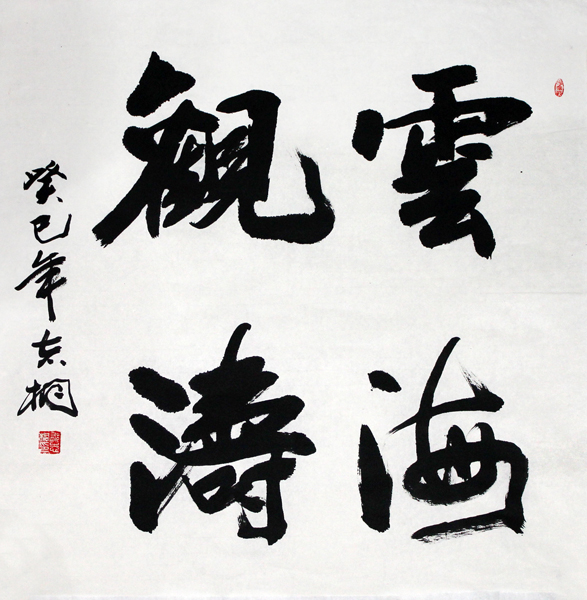 雲海
觀濤
癸巳年志桐